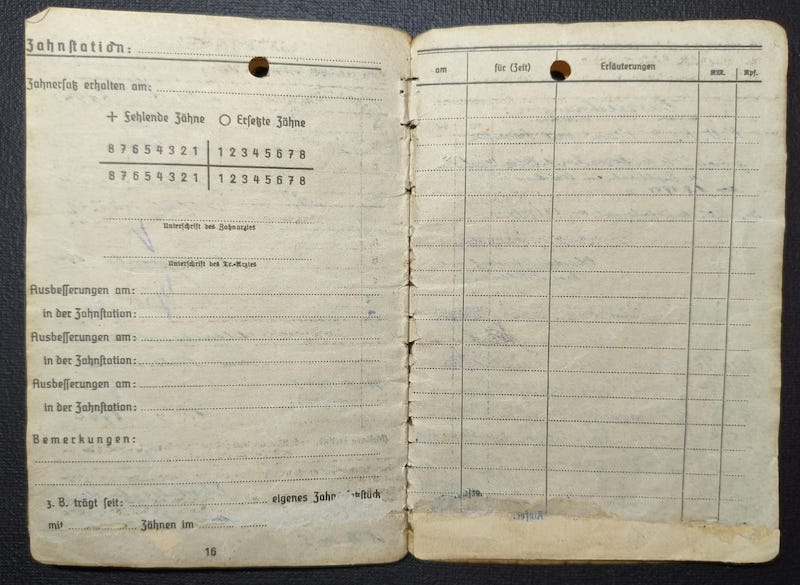 Zahnstation:
Zahnersatz erhalten am:
+ Fehlende Zähne ○ Ersetzte Zähne
8 7 6 5 4 3 2 1 | 1 2 3 4 5 6 7 8
8 7 6 5 4 3 2 1 | 1 2 3 4 5 6 7 8
Unterschrift des Zahnarztes
Unterschrift des Tr.-Arztes
Ausbesserungen am:
in der Zahnstation:
Ausbesserungen am:
in der Zahnstation:
Ausbesserungen am:
in der Zahnstation:
Bemerkungen:
z. B. trägt seit: eigenes Zahn
mit Zähnen im
16
am für (Zeit) Erläuterungen RM. Rpf.